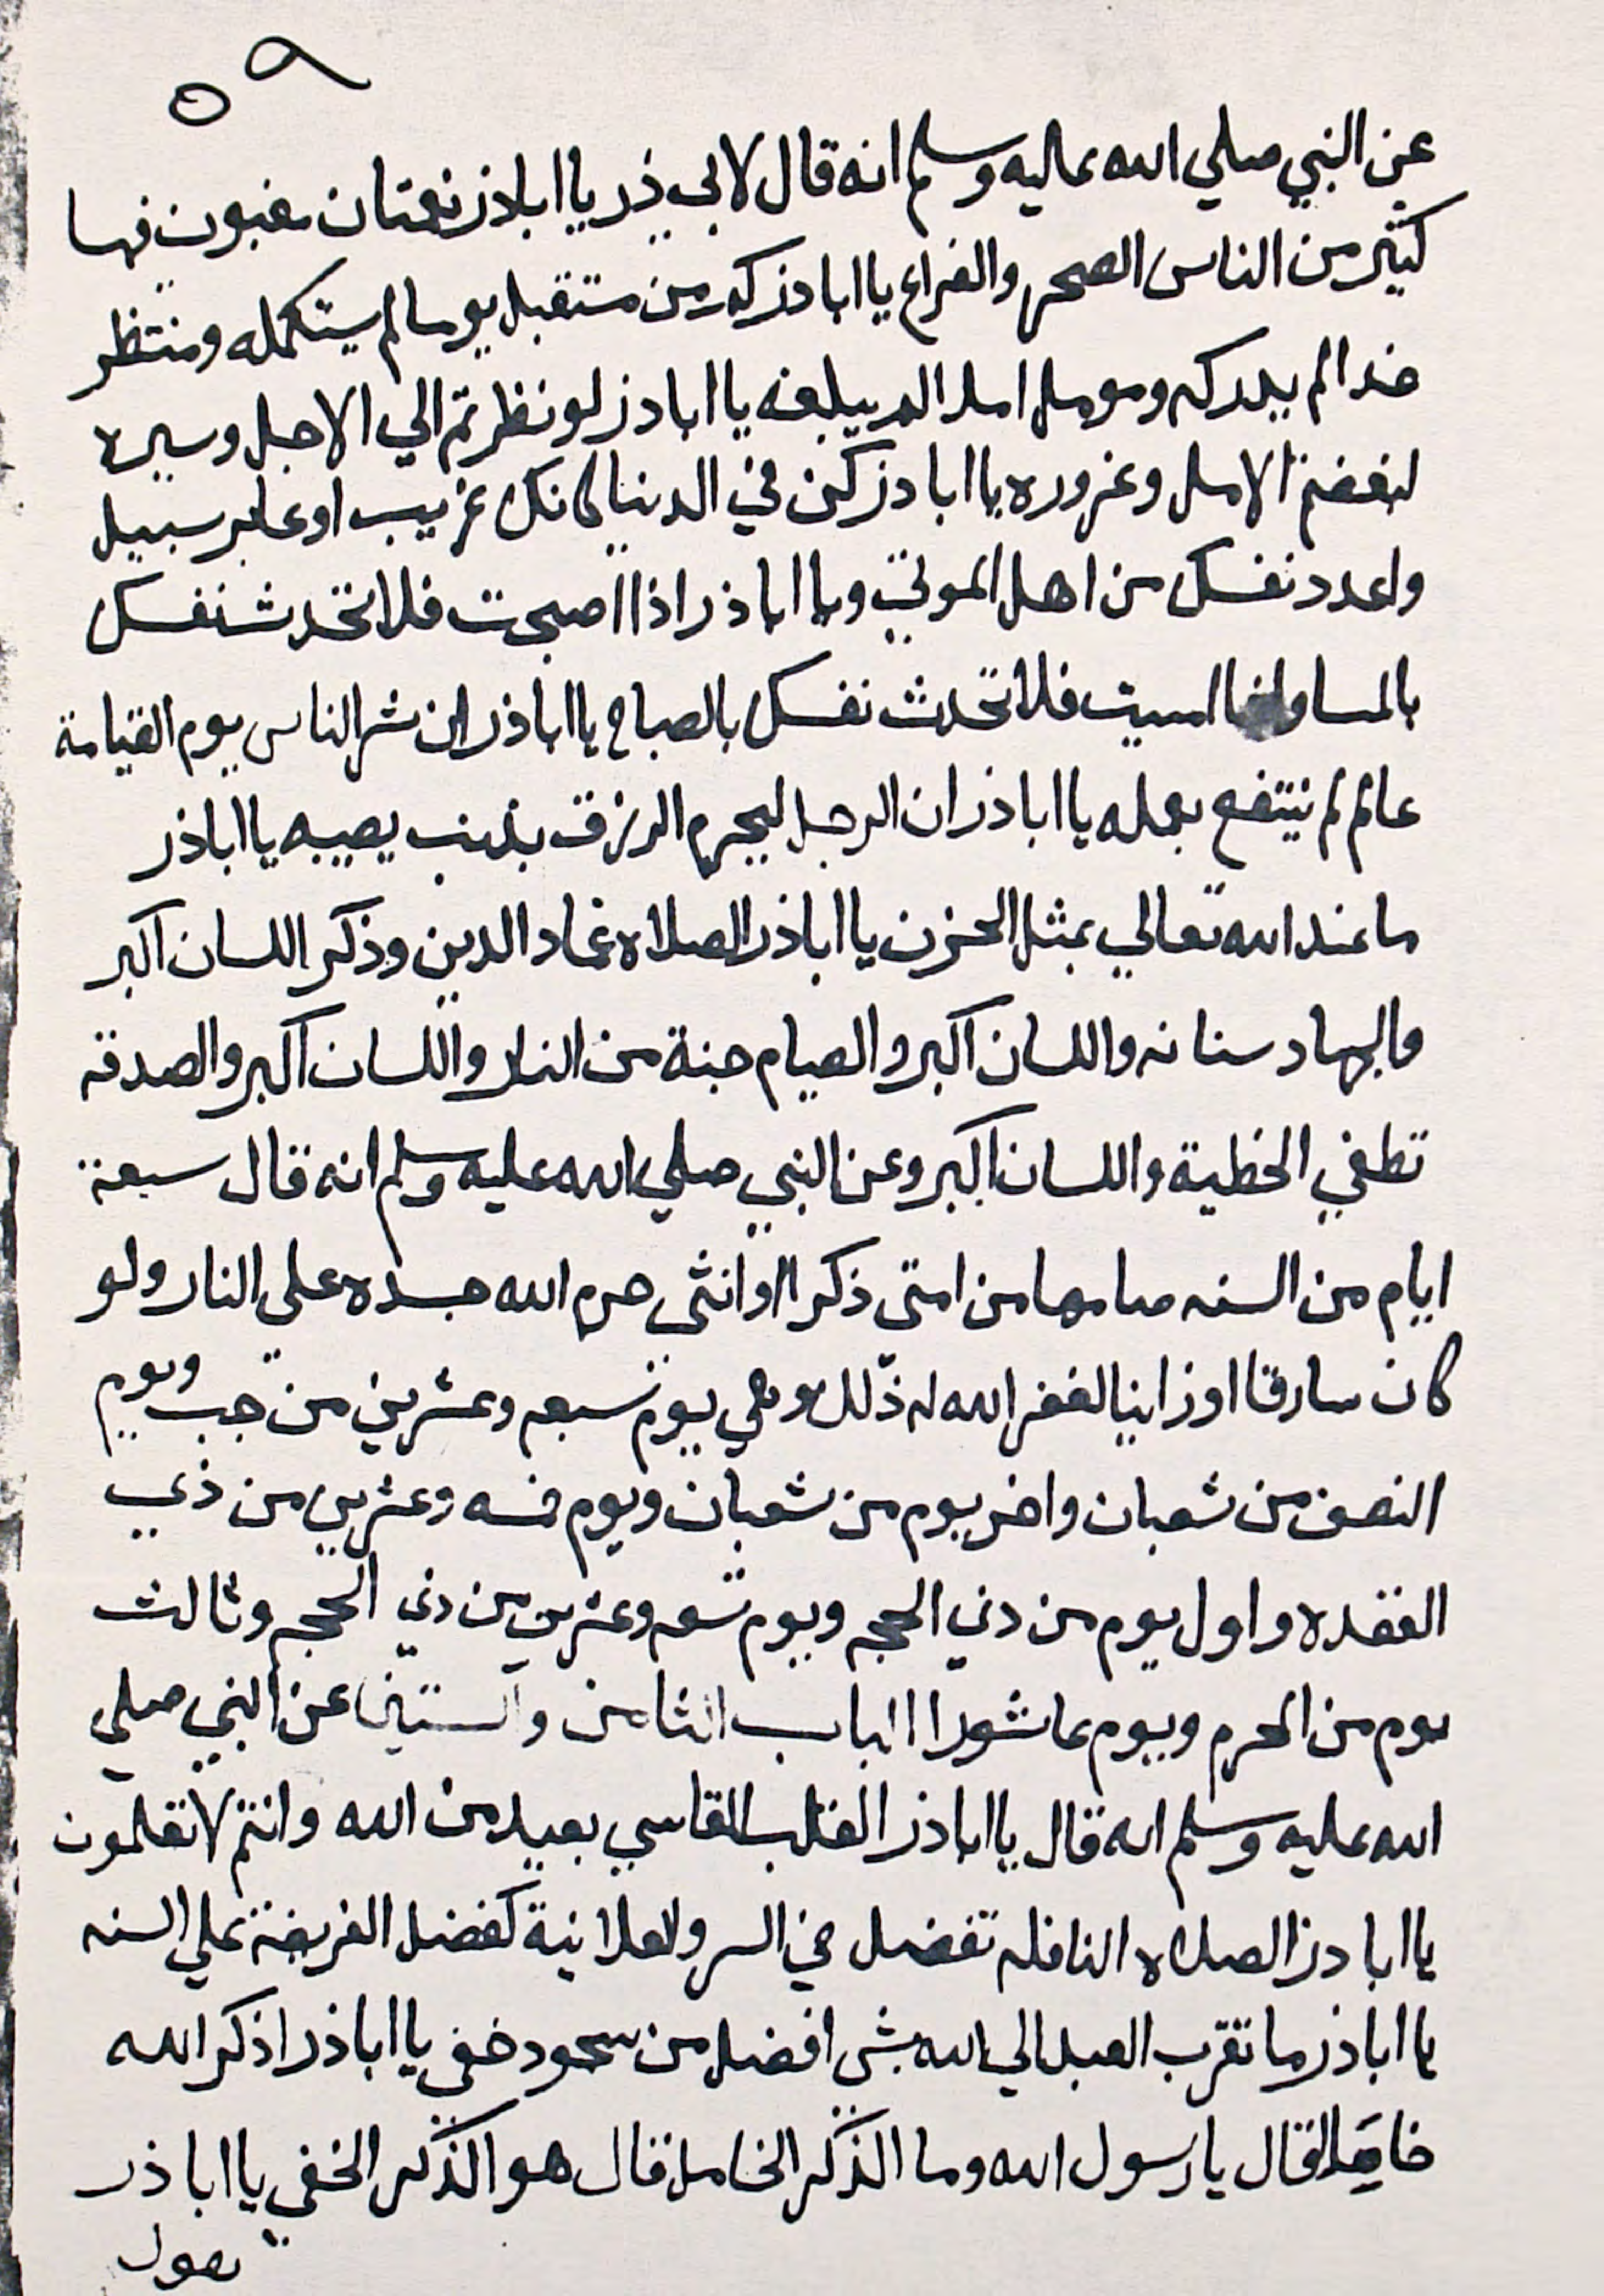 ٥٩
عن النبي صلي الله عليه وسلم انه قال لابي ذر يا اباذر نعمتان مغبون فيها
كثير من الناس الصحه والفراغ يا اباذر كم من مستقبل يوما لم يستكمله ومنتظر
غدا لم يدركه ومومل املا لم يبلغه يا اباذر لو نظرتم الي الاجل وسيره
لبغضتم الامل وغروره يا اباذر كن في الدنيا كانك غريب او عابر سبيل
واعدد نفسك من اهل الموتي ويا اباذر اذا اصبحت فلا تحدث نفسك
بالمسا واذا امسيت فلا تحدث نفسك بالصباح يا اباذر ان شر الناس يوم القيامة
عالم لم ينتفع بعمله يا اباذر ان الرجل ليحرم الرزق بذنب يصيبه يا اباذر
ما عند الله تعالي بمثل الحزن يا اباذر الصلاه عماد الدين وذكر اللسان اكبر
والجهاد سنانه واللسان اكبر والصيام جنة من النار واللسان اكبر والصدقه
تطفي الخطية واللسان اكبر وعن النبي صلي الله عليه وسلم انه قال سبعة
ايام من السنه صامها من امتي ذكرا او انثي حرم الله جسده علي النار ولو
كان سارقا او زانيا لغفر الله له ذلك وهي يوم سبعه وعشرين من رجب ويوم
النصف من شعبان واخر يوم من شعبان ويوم خمسه وعشرين من ذي
القعده واول يوم من ذي الحجه ويوم تسعه وعشرين من ذي الحجه وثالث
يوم من المحرم ويوم عاشورا الباب الثامن والستين عن النبي صلي
الله عليه وسلم انه قال يا اباذر القلب القاسي بعيد من الله وانتم لا تعلمون
يا اباذر الصلاه النافله تفضل في السر ولعلانية كفضل الفريضة علي السنه
يا اباذر ما تقرب العبد الي الله بشي افضل من سجود خفي يا اباذر اذكر الله
خاملا قال يا رسول الله وما الذكر الخامل قال هو الذكر الخفي يا اباذر
يقول